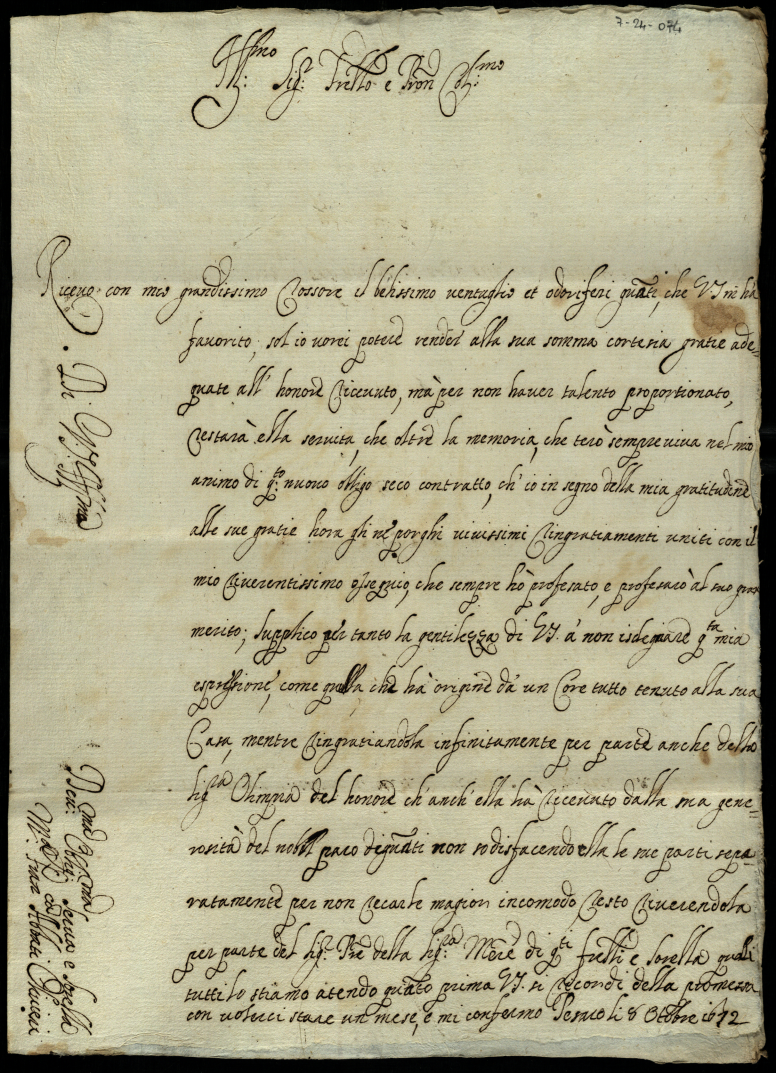 7-24-074
Ill.mo Sig.r Frello e Pron Col.mo
Ricevo con mio grandissimo rossore il belissimo ventaglio et odoriferi guanti, che VS m'hà
favorito, sol io vorei potere render alla sua somma cortesia gratie ade=
guate all' honore ricevuto, mà per non haver talento proportionato,
restarà ella servita, che oltre la memoria, che terò sempre viva nel mio
animo di q.to nuovo obligo seco contratto, ch' io in segno della mia gratitudine
alle sue gratie hora gli ne porghi vivissimi ringratiamenti uniti con il
mio riverentissimo ossequio, che sempre hò profesato, e profesarò al suo gran
merito; supplico per tanto la gentilezza di VS. a non isdegnare q.ta mia
espressione, come quella che hà origine da un Core tutto tenuto alla sua
Casa, mentre ringratiandola infinitamente per parte anche della
sig.ra Olimpia del honore ch' anch' ella hà ricevuto dalla sua gene=
rosità del nobil paro di guanti non sodisfacendo ella le sue parti sepa=
ratamente per non recarle magior incomodo resto riverendola
per parte del Sig.r Pre della Sig.ra Mere di q.ti frelli e sorella quali
tutti lo stiamo atendo quanto prima VS. si racordi della promessa
con volerci stare un mese, e mi confermo Pesaro li 8 Ottobre 1672
Di VS. Ill.ma
Dev.ma Obl.ma Serva e Sorella
M.a